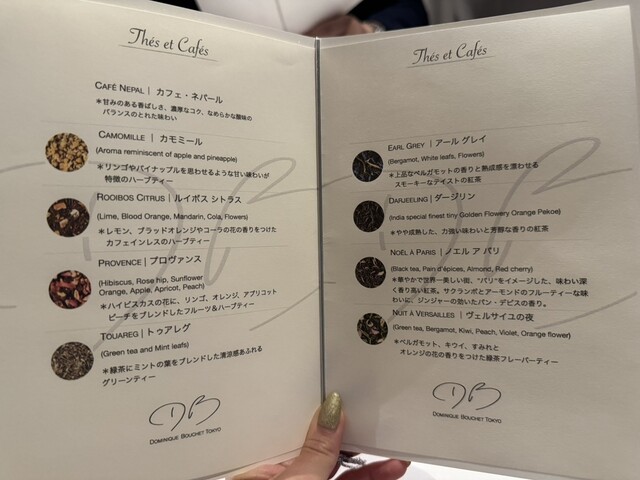 Thés et Cafés
CAFÉ NEPAL | カフェ・ネパール
＊甘みのある香ばしさ、濃厚なコク、なめらかな酸味の
バランスのとれた味わい
CAMOMILLE | カモミール
(Aroma reminiscent of apple and pineapple)
＊リンゴやパイナップルを思わせるような甘い味わいが
特徴のハーブティー
ROOIBOS CITRUS | ルイボス シトラス
(Lime, Blood Orange, Mandarin, Cola, Flowers)
＊レモン、ブラッドオレンジやコーラの花の香りをつけた
カフェインレスのハーブティー
PROVENCE | プロヴァンス
(Hibiscus, Rose hip, Sunflower
Orange, Apple, Apricot, Peach)
＊ハイビスカスの花に、リンゴ、オレンジ、アプリコット
ピーチをブレンドしたフルーツ＆ハーブティー
TOUAREG | トゥアレグ
(Green tea and Mint leafs)
＊緑茶にミントの葉をブレンドした清涼感あふれる
グリーンティー
DB
DOMINIQUE BOUCHET TOKYO
Thés et Cafés
EARL GREY | アール グレイ
(Bergamot, White leafs, Flowers)
＊上品なベルガモットの香りと熟成感を漂わせる
スモーキーなテイストの紅茶
DARJEELING | ダージリン
(India special finest tiny Golden Flowery Orange Pekoe)
＊やや成熟した、力強い味わいと芳醇な香りの紅茶
NOËL À PARIS | ノエル ア パリ
(Black tea, Pain d'épices, Almond, Red cherry)
＊華やかで世界一美しい街、"パリ"をイメージした、味わい深
く香り高い紅茶。サクランボとアーモンドのフルーティーな味
わいに、ジンジャーの効いたパン・デピスの香り。
NUIT À VERSAILLES | ヴェルサイユの夜
(Green tea, Bergamot, Kiwi, Peach, Violet, Orange flower)
＊ベルガモット、キウイ、すみれと
オレンジの花の香りをつけた緑茶フレーバーティー
DB
DOMINIQUE BOUCHET TOKYO